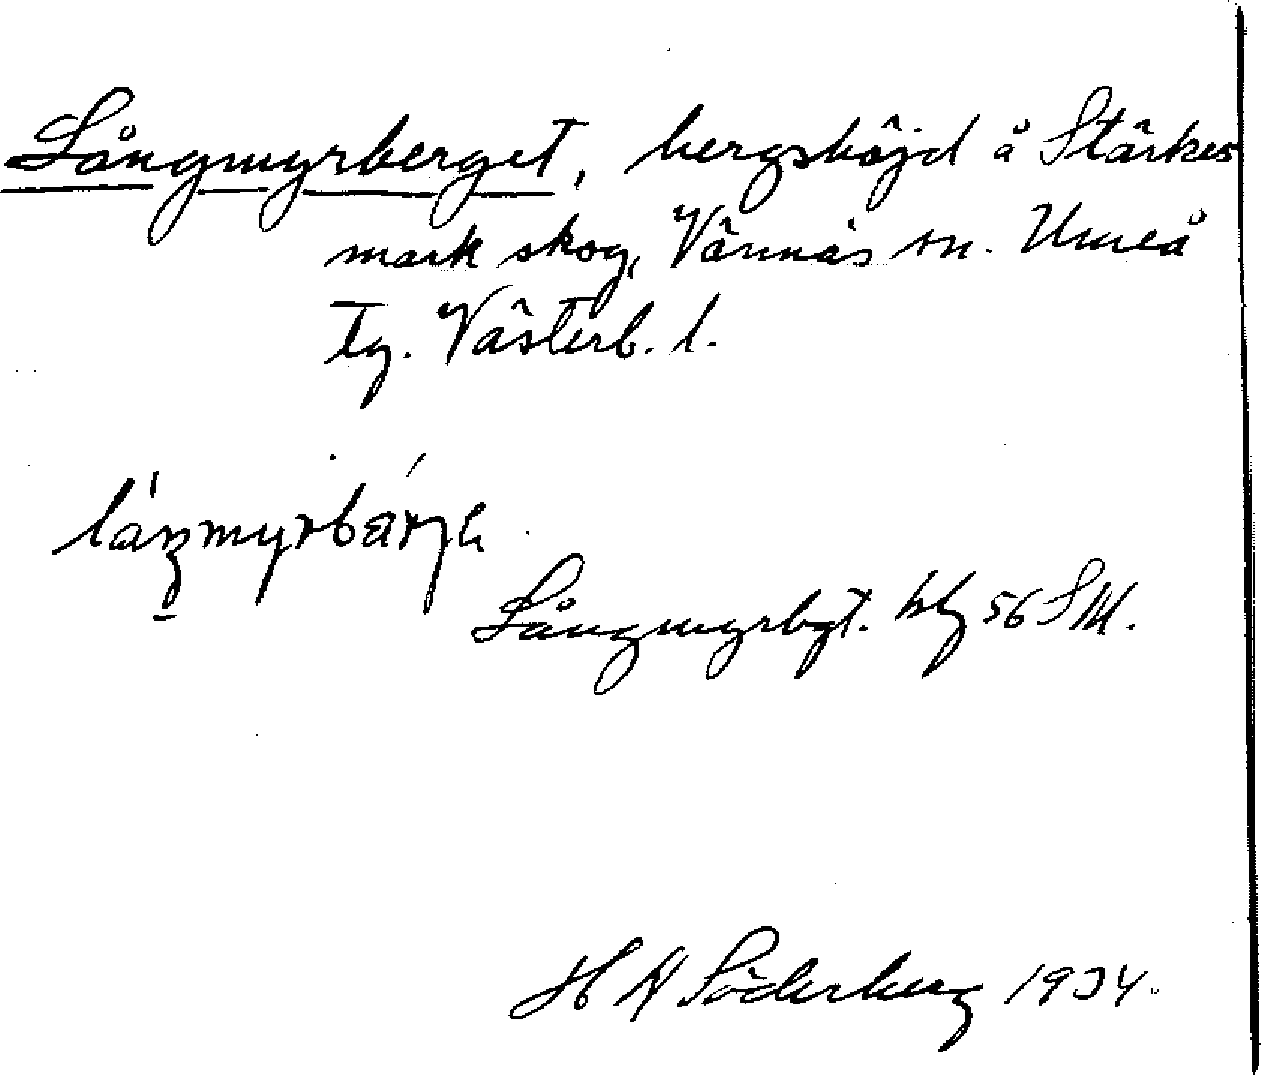 Långmyrberget, bergshöjd å Stärkes
mark skog, Vännäs sn. Umeå
tg. Västerb. l.
Långmyrbgt. blg 56 SM.
H A Söderberg 1934.